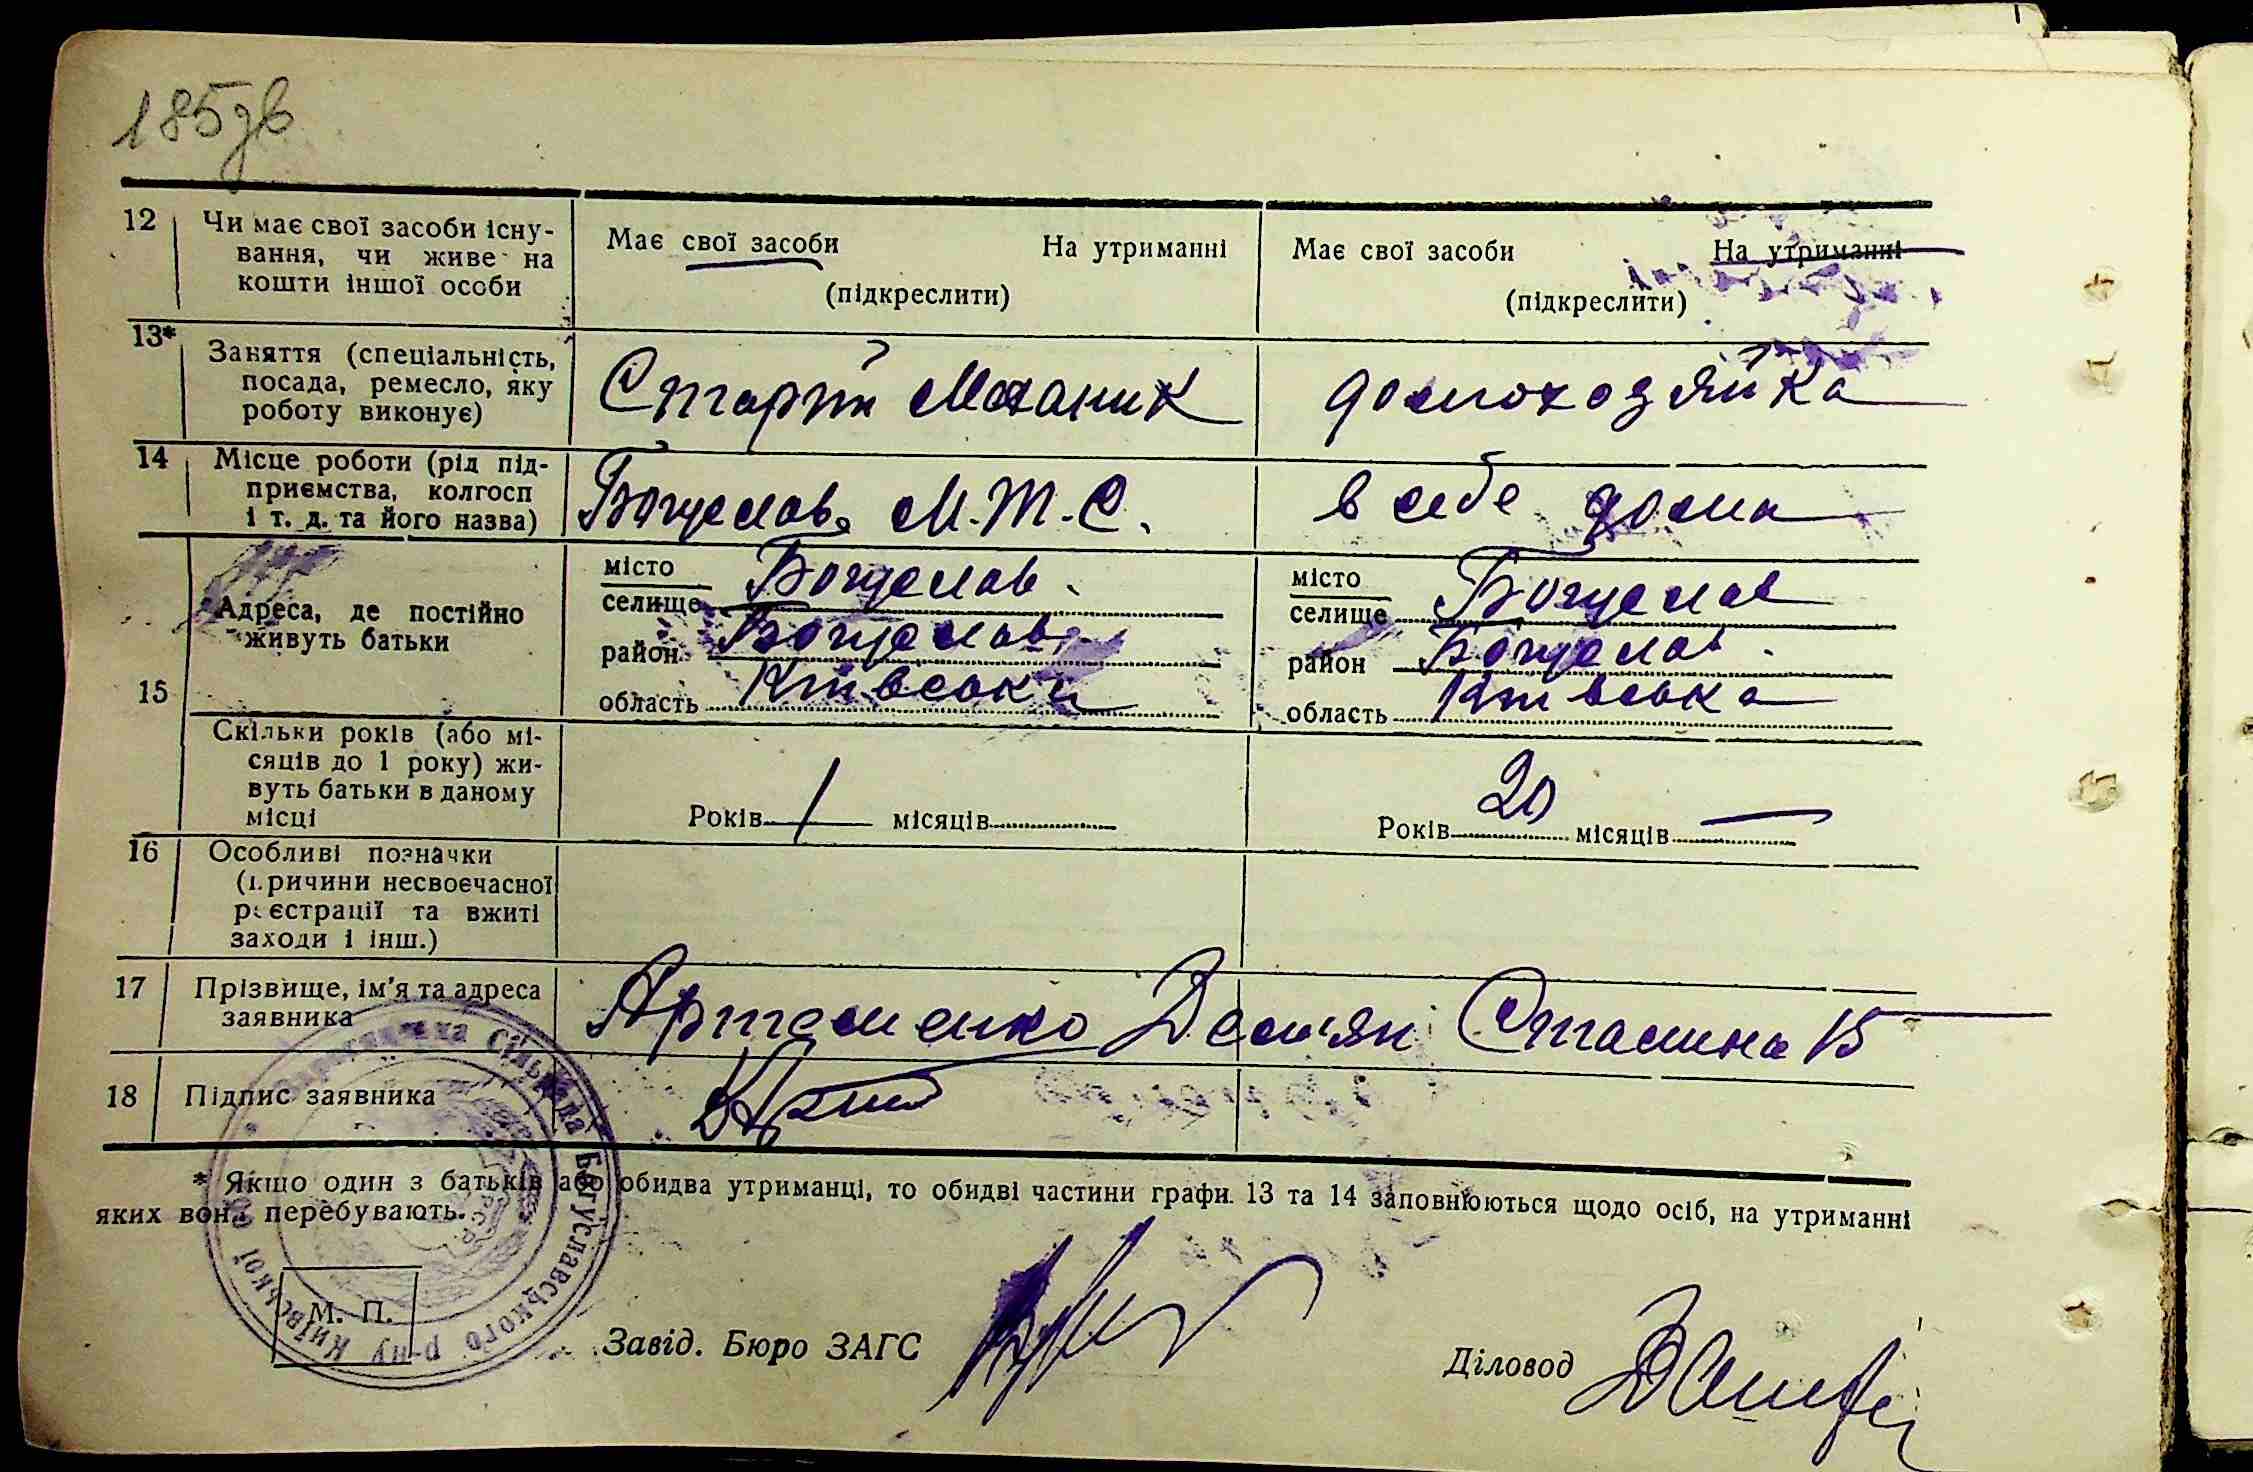 185зв
12 Чи має свої засоби існу-
вання, чи живе на
кошти іншої особи
Має свої засоби На утриманні
(підкреслити)
Має свої засоби На утриманні
(підкреслити)
13* Заняття (спеціальність,
посада, ремесло, яку
роботу виконує)
Старий Механик
домохозяйка
14 Місце роботи (рід під-
приємства, колгосп
і т. д. та його назва)
Богуслав. М.Т.С.
в себе дома
15 Адреса, де постійно
живуть батьки
місто
селище Богуслав
район Богуслав
область Київська
місто
селище Богуслав
район Богуслав
область Київська
15 Скільки років (або мі-
сяців до 1 року) жи-
вуть батьки в даному
місці
Років 1 місяців
Років 20 місяців —
16 Особливі позначки
(причини несвоєчасної
реєстрації та вжиті
заходи і інш.)
17 Прізвище, ім'я та адреса
заявника
Артеменко Дем'ян Сталина 15
18 Підпис заявника
* Якщо один з батьків або обидва утриманці, то обидві частини графи 13 та 14 заповнюються щодо осіб, на утриманні
яких вони перебувають.
Сільрада Богуславського р-ну Київської
М. П.
Завід. Бюро ЗАГС
Діловод